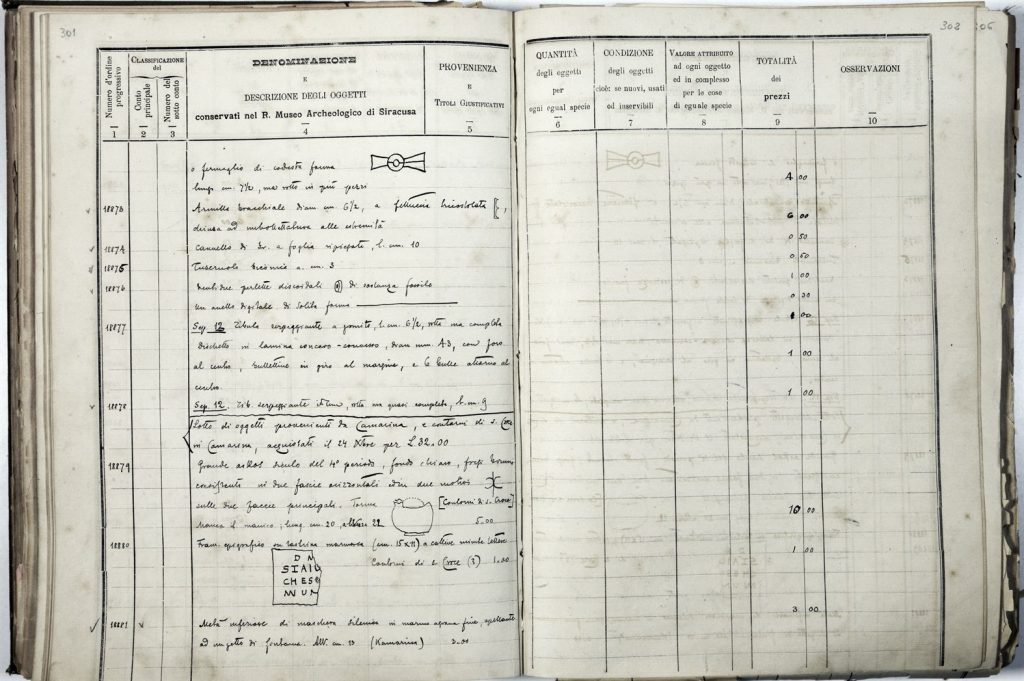 301
Numero d'ordine progressivo
Classificazione del
Conto principale
Numero del sotto conto
DENOMINAZIONE
E
DESCRIZIONE DEGLI OGGETTI
conservati nel R. Museo Archeologico di Siracusa
PROVENIENZA
E
Titoli Giustificativi
1 2 3 4 5
o fermaglio di codesta forma
lung. cm. 7 1/2, ma rotto in più pezzi
18873 Armilla bracchiale diam. cm. 6 1/2, a fettuccia tricostolata
alle estremità
18874 Cannello di br. a foglia ripiegata, l. cm. 10
18875 a. cm. 3
18876 perlette discoidali di sostanza fossile
Un anello digitale di solita forma
18877 Sep. 12 Fibula serpeggiante a gomito, l. cm. 6 1/2, rotta ma completa
Dischetto in lamina concavo-convesso, diam mm. 43, con foro
al centro, bullettine in giro al margine, e 6 bulle attorno al
centro.
18878 Sep. 12. Fib. serpeggiante rotta ma quasi completa, l. cm. 9
Lotto di oggetti provenienti da Camarina, e contorni di S. Croce
in Camarina, acquistati il 24 Nbre per L. 32.00
18879 Grande askos siculo del 4° periodo, fondo chiaro, fregi
consistente in due fascie orizzontali ed in due motivi
sulle due faccie principali. Forma [Contorni di S. Croce]
Manca il manico; lung. cm. 20, altezza 22 5.00
18880 Fram. epigrafico su lastrina marmorea (cm. 15 x 11) a cattive minute lettere
Contorni di S. Croce (?) 1.00
D M
SIAIL
CHESE
NNUM
18881 Metà inferiore di maschera silenica in marmo a grana fine, spettante
ad un getto di fontana. Alt. cm. 13 (Kamarina) 3.00
302
QUANTITÀ
degli oggetti
per
ogni egual specie
6
CONDIZIONE
degli oggetti
cioè: se nuovi, usati
od inservibili
7
Valore attribuito
ad ogni oggetto
ed in complesso
per le cose
di eguale specie
8
TOTALITÀ
dei
prezzi
9
OSSERVAZIONI
10
4 00
6 00
0 50
0 50
1 00
0 30
1 00
1 00
1 00
10 00
1 00
3 00